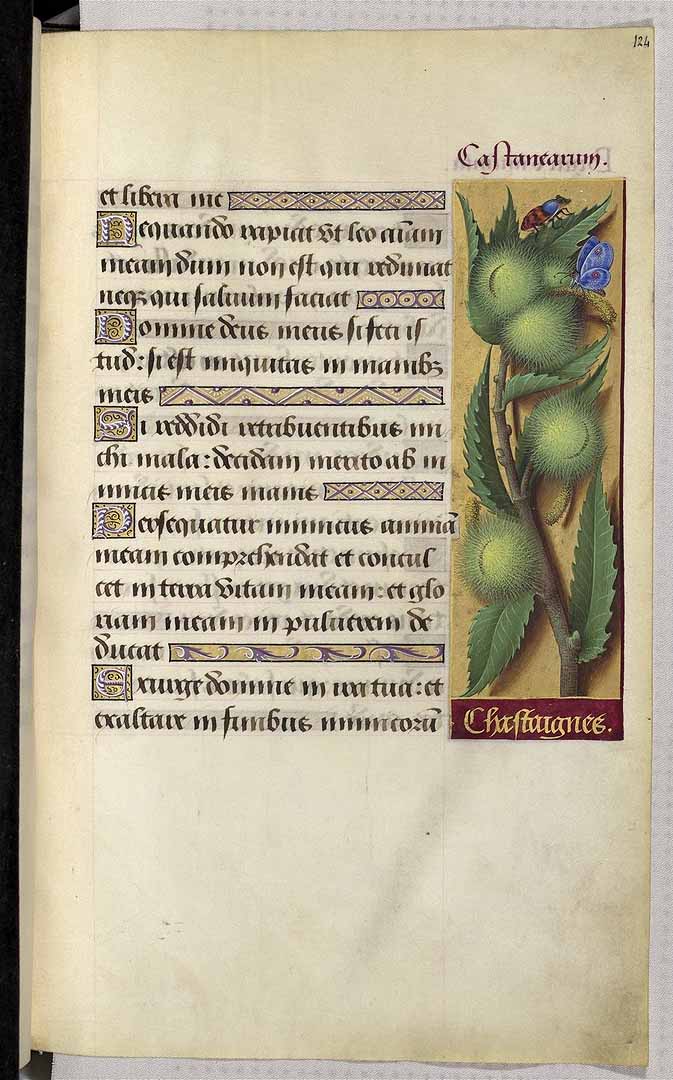 124
Castanearum.
et libera me
Nequando rapiat vt leo aīam
meam dum non est qui redimat
neq; qui saluum faciat
Domine deus meus si feci is
tud: si est iniquitas in manibꝫ
meis
Si reddidi retribuentibus mi
chi mala: decidam merito ab in
imicis meis inanis
Persequatur inimicus animā
meam comprehendat et concul
cet in terra vitam meam: et glo
riam meam in puluerem de
ducat
Exurge domine in ira tua: et
exaltare in finibus inimicorū
Chastaignes.